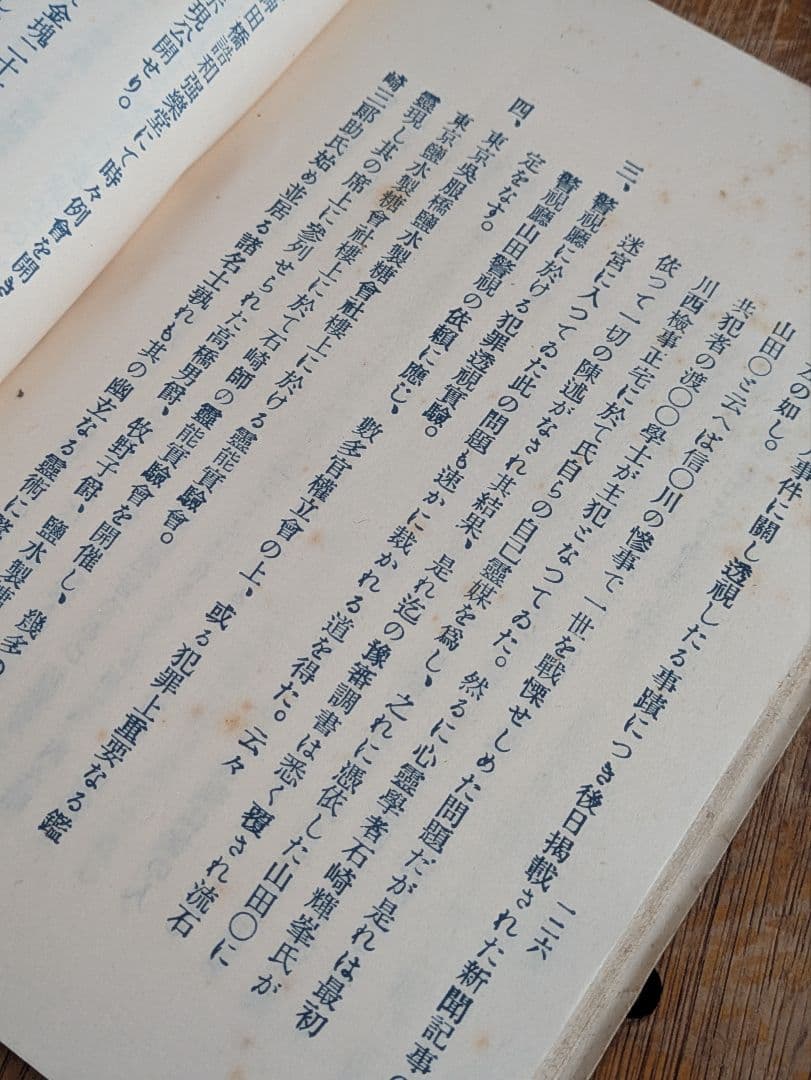 一二六
の如し。
事件に關し透視したる事蹟につき後日揭載された新聞記事の
山田〇と云へば信〇川の慘事で一世を戰慄せしめた問題だが是れは最初
共犯者の渡〇〇學士が主犯となつてゐた。然るに心靈學者石崎輝峯氏が
川西檢事正宅に於て氏自らの自己靈媒を爲し、之れに憑依した山田〇に
依つて一切の陳述がなされ其結果、是れ迄の豫審調書は悉く覆され流石
迷宮に入つてゐた此の問題も速かに裁かれる道を得た。云々
三、警視廳に於ける犯罪透視實驗。
警視廳山田警視の依賴に應じ、數多官權立會の上、或る犯罪上重要なる鑑
定をなす。
四、東京吳服橋鹽水製糖會社樓上に於ける靈能實驗會。
東京鹽水製糖會社樓上に於て石崎師の靈能實驗會を開催し、幾多の
靈現し其の席上に參列せられた高橋男爵、牧野子爵、鹽水製糖
崎三郞助氏始め並居る諸名士孰れも其の幽玄なる靈術に
神田橋詰和强樂堂にて時々例會を開き
現公開せり。
金塊二十